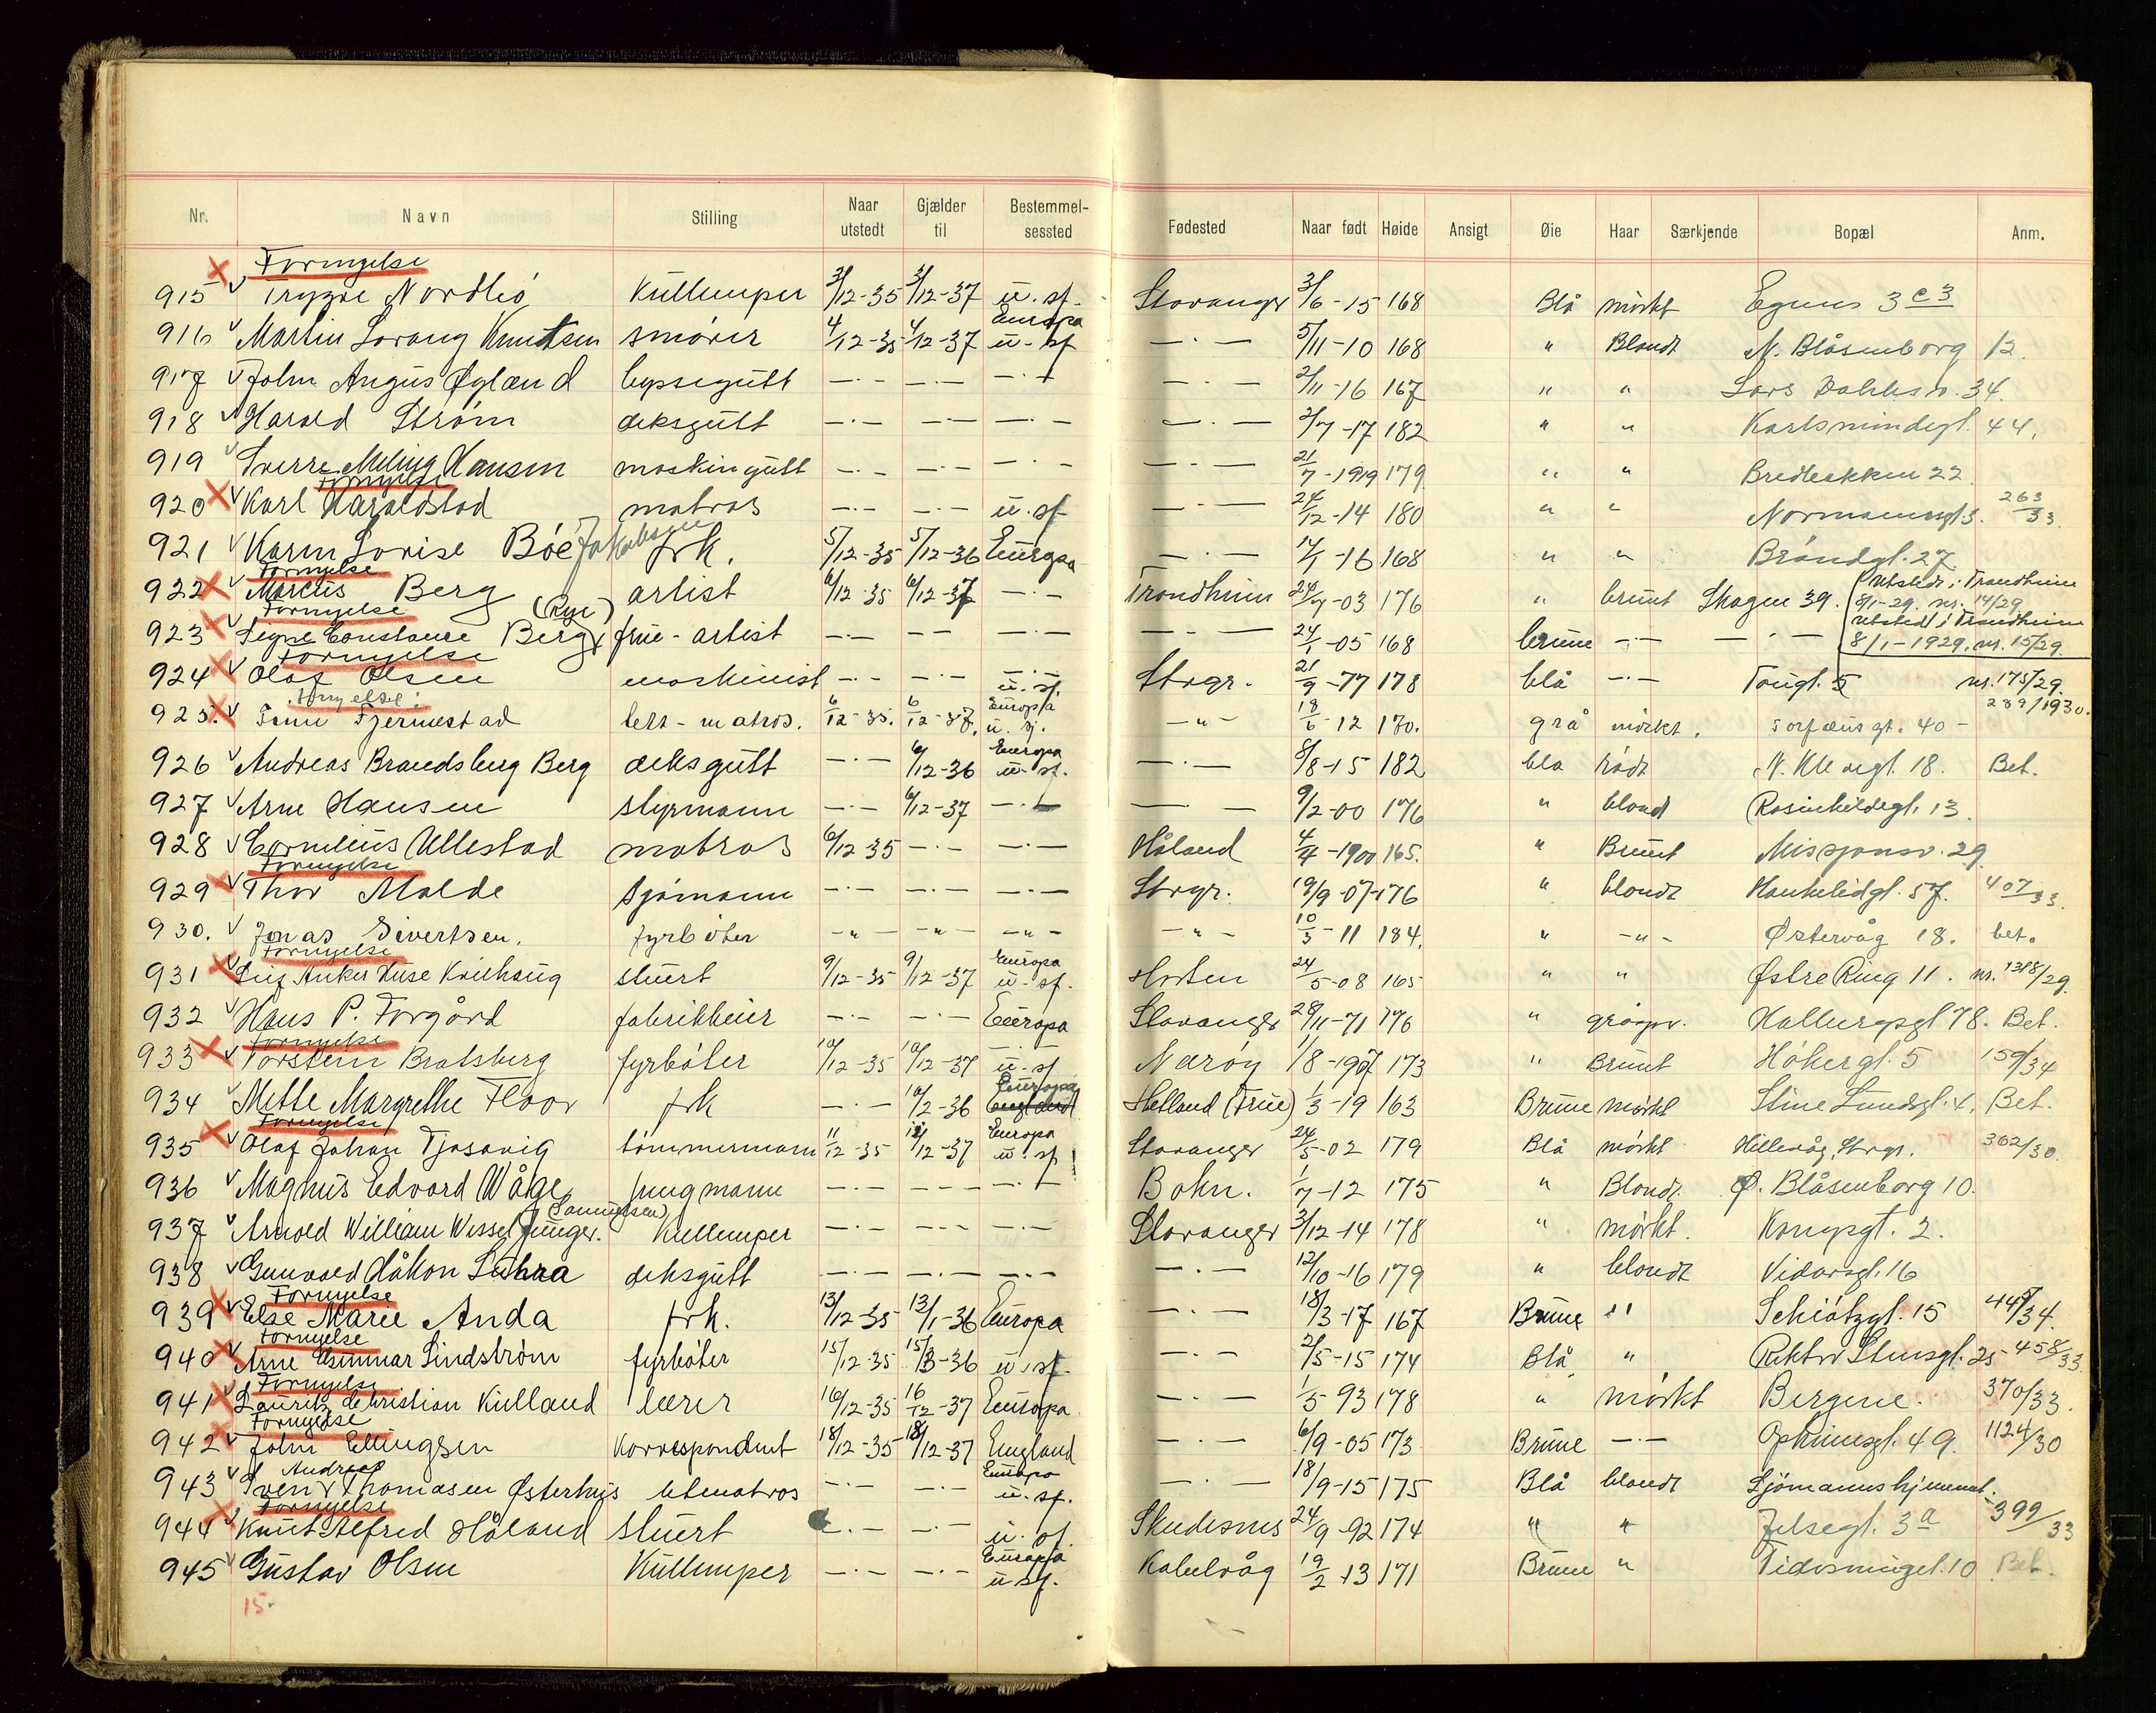 Nr. Navn Stilling Naar utstedt Gjælder til Bestemmelsessted Fødested Naar født Høide Ansigt Øie Haar Særkjende Bopæl Anm.
Fornyelse
915 Trygve Nordbø Kullemper 3/12-35 3/12-37 u.sf. Stavanger 3/6-15 168 Blå mørkt Egenes 3 c 3
916 Martin Lorang Knutsen smører 4/12-35 4/12-37 Europa u.sf —.— 5/11-10 168 " Blondt N. Blåsenborg 12.
917 John Angus Øgland byssegutt —.— —.— —.— —.— 2/11-16 167 " " Lars 34.
918 Harald Strøm deksgutt —.— —.— —.— —.— 2/7-17 182 " " Karlsmindegt. 44.
919 Sverre Meling Hansen maskingutt —.— —.— —.— —.— 21/7-1919 179 " " Bredbakken 22.
Fornyelse
920 Karl Haraldstad matros —.— —.— u.sf —.— 24/12-14 180 " " Normannsgt. 3. 263/33
921 Karen Lovise Bøe Jakobsen frk. 5/12-35 5/12-36 Europa —.— 17/1-16 168 " " Brøndgt. 27
Fornyelse
922 Marcus Berg artist 6/12-35 6/12-37 —.— Trondheim 24/7-03 176 " brunt Skagen 39. Utstedt i Trondheim 8/1-29. nr. 14/29
Fornyelse
923 Signe Constance Berg (Rye) frue-artist —.— —— —.— —.— 24/1-05 168 brune —.— —.— Utstedt i Trondheim 8/1-1929. nr. 15/29.
Fornyelse
924 Olaf Olsen maskinist —.— —.— —.— u.sf. Stvgr. 21/9-77 178 blå —.— Tougt. 5 nr. 175/29.
Fornyelse:
925. Fjermestad lett-matros. 6/12-35. 6/12-37. Europa u.sj. —"— 18/6-12 170. grå mørkt. Torfæusgt. 40— 289/1930.
926 Andreas Brandsberg Berg deksgutt —.— 6/12-36 Europa u.sf. —.— 8/8-15 182 blå rødt N. Klevegt. 18. Bet.
927 Arne Hansen styrmann —.— 6/12-37 —.— —.— 9/2-00 176 " blondt Rosenkildegt. 13.
928 Cornelius Ullestad matros 6/12-35 —.— —.— Håland 4/4-1900 165. " Brunt Missjonsv. 29
Fornyelse
929 Thor Malde sjømann —.— —.— —.— Stvgr. 19/9-07 176 " blondt Haukelidgt. 57. 407/33.
930. Jonas Sivertsen. fyrbøter —"— —"— —"— —"— 10/3-11 184. " —"— Østervåg 18. bet.
Fornyelse
931 Leif Anker Huse stuert 9/12-35 9/12-37 Europa u.sf. Horten 24/5-08 165 " " Østre Ring 11. nr. 1318/29
932 Hans P. Torgård fabrikkeier —.— —.— Europa Stavanger 28/11-71 176 " gråspr. Kallbergsgt 78. Bet.
Fornyelse
933 Torstein Bratsberg fyrbøter 10/12-35 10/12-37 —.— u.sf Nærøy 1/8-1907 173 " Brunt Høkergt. 5 159/34
934 Mette Margrethe Floor frk —.— 10/2-36 Europa England Hetland (Frue) 1/3-19 163 Brune mørkt Stine Lundsgt. 4. Bet.
Fornyelse
935 Olaf Johan Tjosevig tømmermann 11/12-35 11/12-37 Europa u.sf Stavanger 24/5-02 179 Blå mørkt Hillevåg, Stvgr. 362/30.
936 Magnus Edvard Våge jungmann —.— —.— —.— Bokn. 1/7-12 175 " Blondt. Ø. Blåsenborg 10.
937 Arnold William Wessel Junger. (Samuelsen) Kullemper —.— —.— —.— Stavanger 3/12-14 178 " mørkt. Kongsgt. 2.
938 Gunvald Håkon Lura deksgutt —.— —.— —.— —.— 12/10-16 179 " blondt Vidarsgt. 16
Fornyelse
939 Else Marie Anda frk. 13/12-35 13/1-36 Europa —.— 18/3-17 167 Brune " Schiøtzgt. 15 445/34.
Fornyelse
940 Arne Gunnar Lindstrøm fyrbøter 15/12-35 15/3-36 u.sf. —.— 2/5-15 174 Blå " Rektor Steensgt. 25 458/33
Fornyelse
941 Lauritz Christian Kielland lærer 16/12-35 16/12-37 Europa —.— 1/5 93 178 " mørkt Bergene. 370/33.
Fornyelse
942 John Ellingsen Korrespondent 18/12-35 18/12-37 England —.— 6/9-05 173 Brune —.— Opheimsgt. 49. 1124/30
943 Sven Andreas Thomasen Østerhus letmatros —.— —.— Europa u.sf. —.— 18/9-15 175 Blå blondt Sjømannshjemmet.
Fornyelse
944 Knut Alfred Håland stuert —.— —.— u.sf. Skudesnes 24/9-92 174 " " Jelsegt. 3 a 399/33
945 Gustav Olsen Kullemper —.— —.— Europa u.sf. Kabelvåg 19/2-13 171 Brune " Tidemingt. 10 Bet.
15.